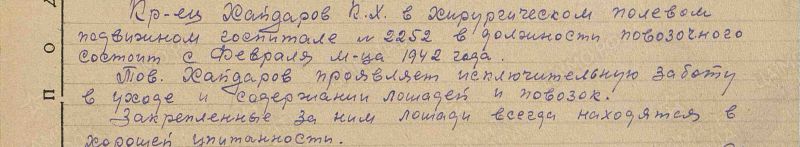 Кр-ец Хайдаров К.Х. в хирургическом полевом
подвижном госпитале № 2252 в должности повозочного
состоит с Февраля м-ца 1942 года.
Тов. Хайдаров проявляет исплючительную заботу
в уходе и содержании лошадей и повозок.
Закрепленные за ним лошади всегда находятся в
хорошей упитанности.
П О